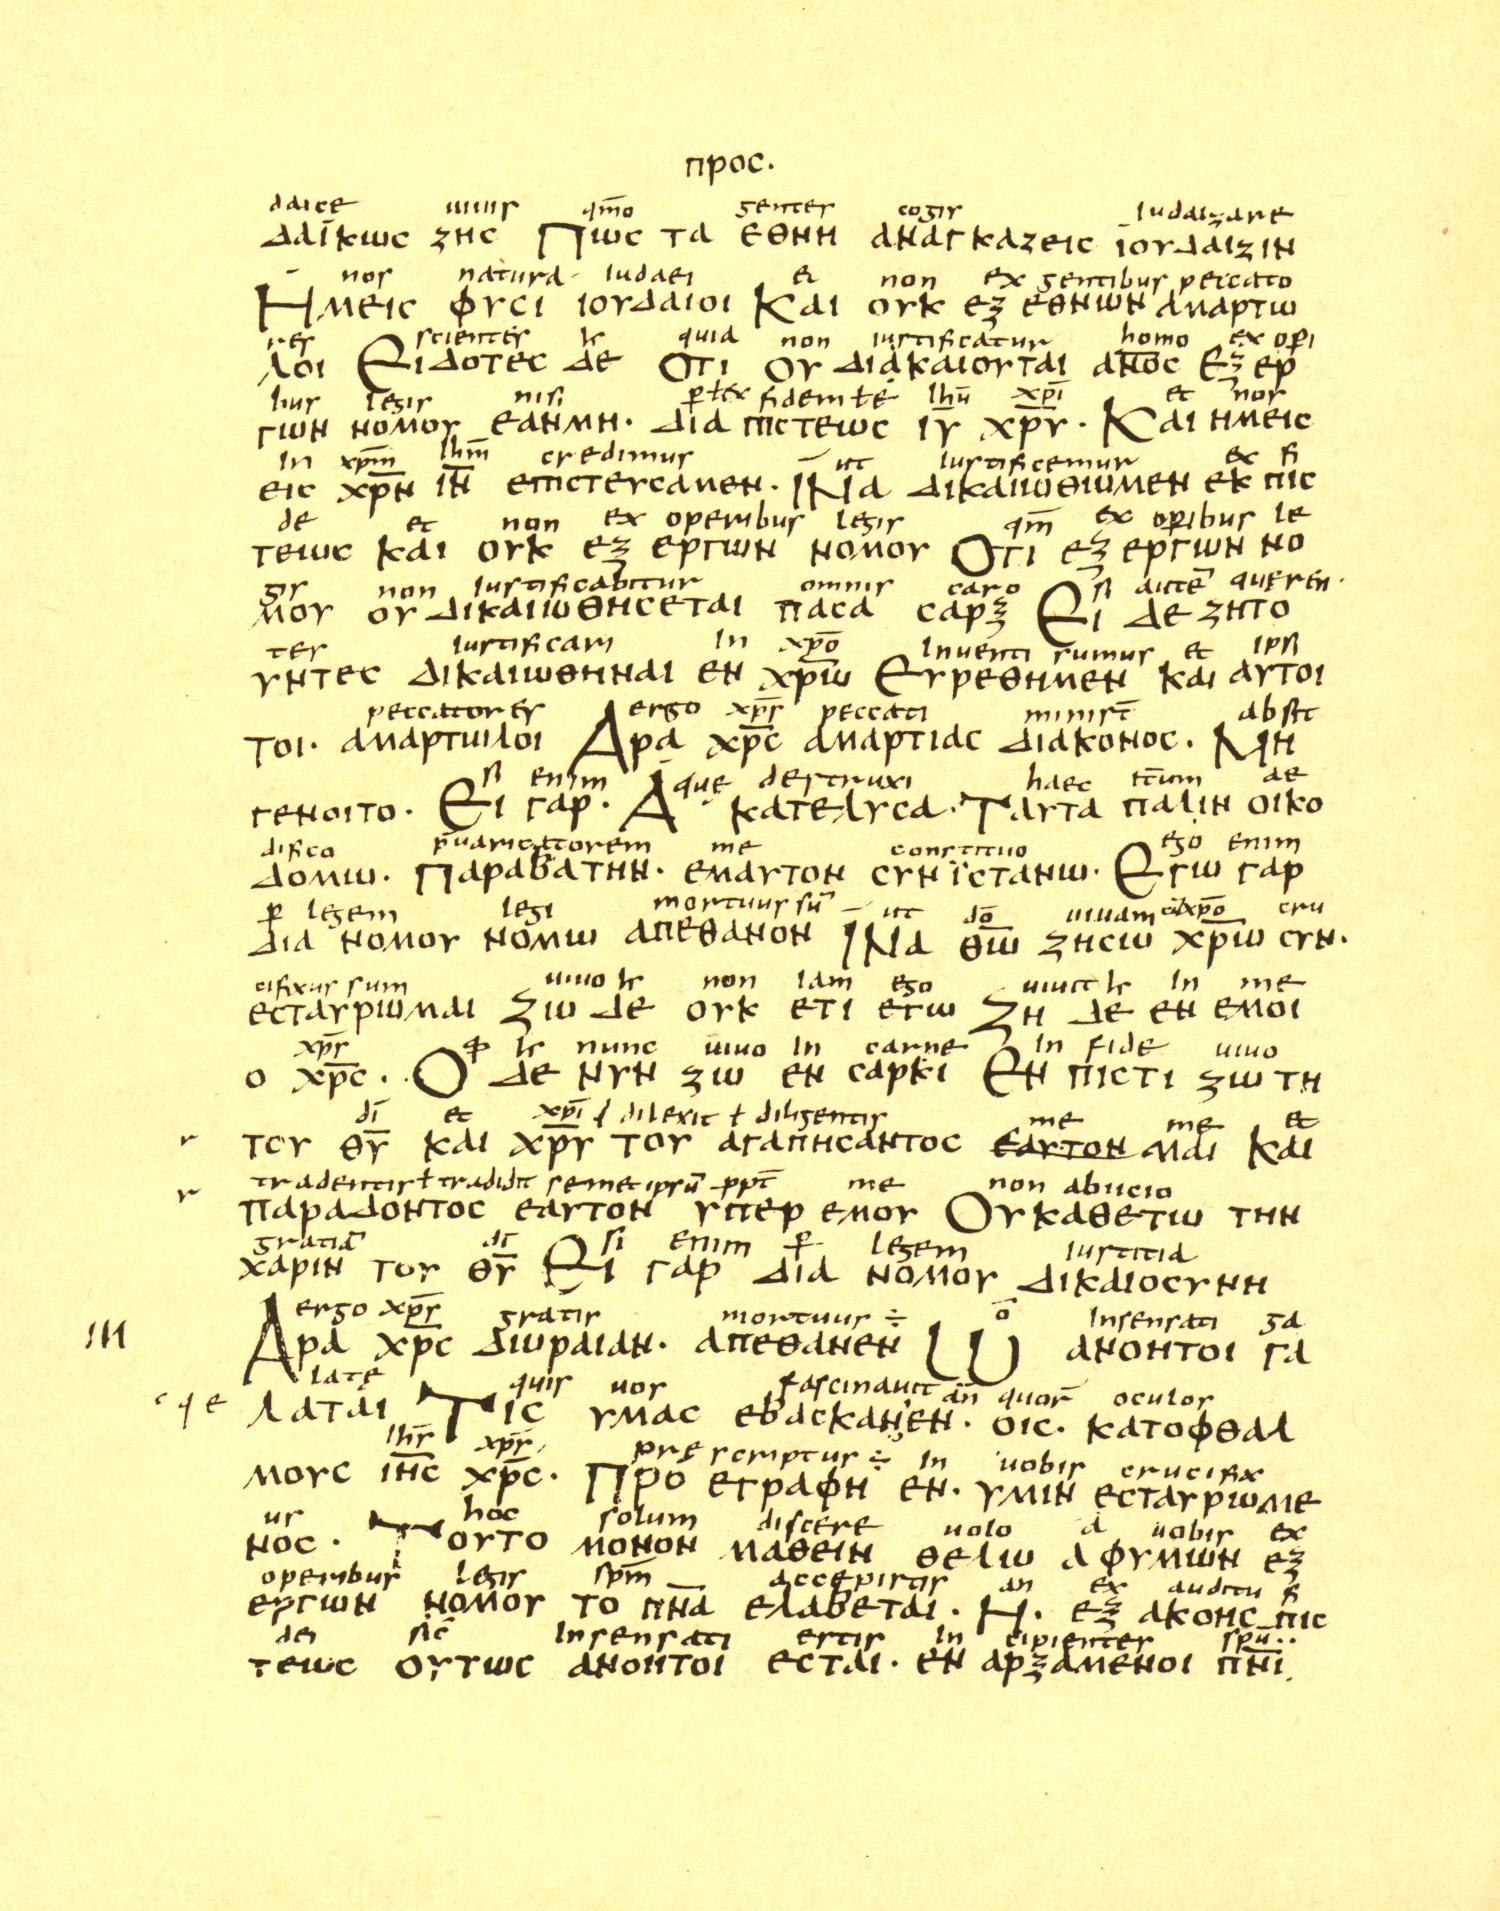 προς.
daice uiuis qm̄o gentes cogis Iudaizare
δαϊκως ζης Πως τα εθνη αναγκαζεις ϊουδαιζιν
nos natura Iudaei et non ex gentibus peccato
Ημεις φυσι ιουδαιοι Και ουκ εξ εθνων αμαρτω
res scientes quia non iustificatur homo ex opi
λοι Ειδοτες δε Οτι ου διακαιουται αν̅ος Εξ ερ
bus legis nisi fidem ihū xpī et nos
γων νομου εανμη. δια πιςτεως ιυ̅ χρυ̅. Και ημεις
In xpm̄ ihm̄ credimus ut iustificemur ex fi
εις χρ̅ν ιν̅ επιςτευσαμεν. Ινα δικαιωθωμεν εκ πις
de et non ex operibus legis qm̄ ex opibus le
τεως και ουκ εξ εργων νομου Οτι εξ εργων νο
gis non Iustificabitur omnis caro si autē queren
μου ου δικαιωθησεται παςα ςαρξ Ει δε ζητο
tes iustificari In xpō Inuenti sumus et ipsi
υντες δικαιωθηναι εν χρω̅ Ευρεθημεν και αυτοι
peccatores ergo xpr̄ peccati minist̄ absit
τοι. αμαρτωλοι Αρα χρ̅ς αμαρτιας διακονος. Μη
si enim que destruxi haec it̄um ae
γενοιτο. Ει γαρ. Α κατελυσα. Ταυτα παλιν οικο
difico p̄uaricatorem me constituo ego enim
δομω. Παραβατην. εμαυτον ςυνϊςτανω. Εγω γαρ
p legem legi mortuus sū ut dō uiuam xpō cru
δια νομου νομω απεθανον Ινα θω̅ ζηςω χρω̅ ςυν.
cifixus sum uiuo non iam ego uiuit In me
εςταυρωμαι Ζω δε ουκ ετι εγω Ζη δε εν εμοι
xpr̄ nunc uiuo In carne In fide uiuo
ο χρ̅ς. Ο δε νυν ζω εν ςαρκι Εν πιςτι ζω τη
dī et xpī dilexit ł diligentis me me et
r του θυ̅ και χρυ̅ του αγαπηςαντος εαυτον μαι και
tradentis ł tradidit semetipsū ppt̄ me non abiicio
r παραδοντος εαυτον υπερ εμου Ουκαθετω την
gratiā di si enim p legem Iustitia
χαριν του θυ̅ Ει γαρ δια νομου δικαιοςυνη
ergo xpr̄ gratis mortuus ÷ ō Insensati ga
III Αρα χρ̅ς δωραιαν. απεθανεν Ω ανοητοι γα
late quis uos fascinauit añ quor̄ oculos
λαται Τις υμας εβαςκανεν. οις. κατοφθαλ
ihr̄ xpr̄ prescriptus ÷ In uobis crucifix
μους ιης̅ χρ̅ς. Προ εγραφη εν. υμιν εςταυρωμε
us hoc solum discere uolo a uobis ex
νος. Τουτο μονον μαθειν θελω αφυμων εξ
operibus legis spm̄ accepistis an ex auditu fi
εργων νομου το πν̅α ελαβεται. Η. εξ ακοης πις
dei sic Insensati estis In cipientes spū..
τεως ουτως ανοητοι εςται. εν αρξαμενοι πν̅ι